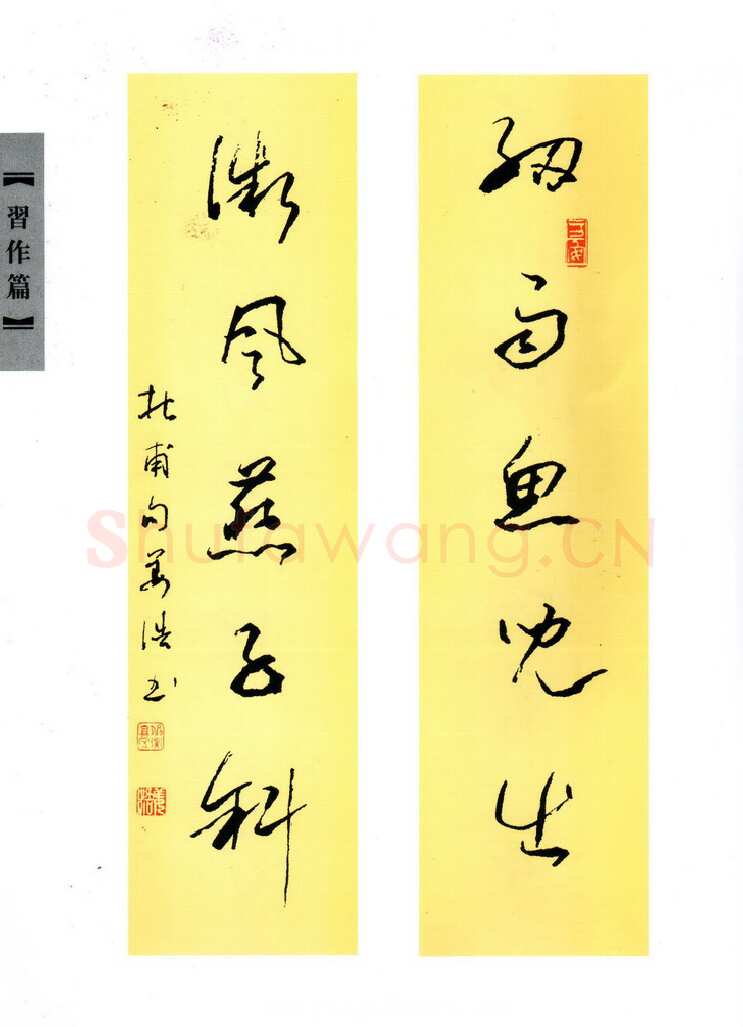 细雨鱼儿出
微风燕子斜
杜甫句姜浩书
【習作篇】
Shufawang.CN